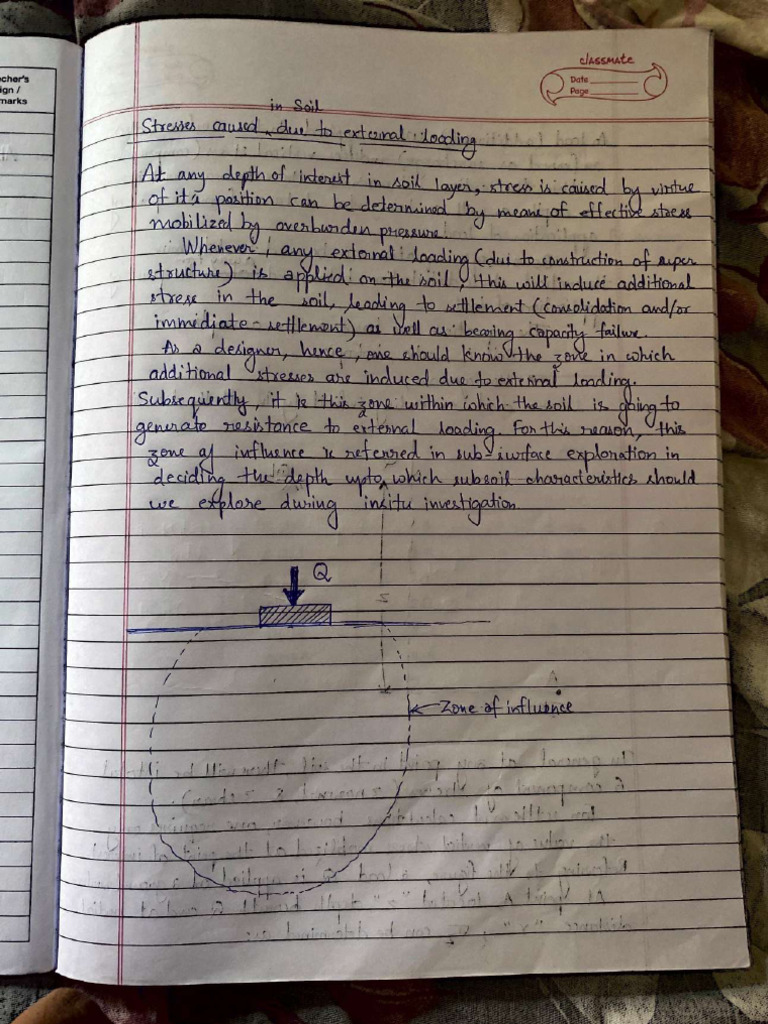 cher's
ign /
marks
classmate
Date
Page
in Soil
Stresses caused, due to external loading
At any depth of interest in soil layer, stress is caused by virtue
of it's position can be determined by means of effective stress
mobilized by overburden pressure.
Whenever, any external loading (due to construction of super
structure) is applied on the soil, this will induce additional
stress in the soil, leading to settlement (consolidation and/or
immediate settlement) as well as bearing capacity failure.
As a designer, hence, one should know the zone in which
additional stresses are induced due to external loading.
Subsequently, it is this zone within which the soil is going to
generate resistance to external loading. For this reason, this
zone of influence is referred in sub-surface exploration in
deciding the depth upto which subsoil characteristics should
we explore during insitu investigation.
Q
Zone of influence